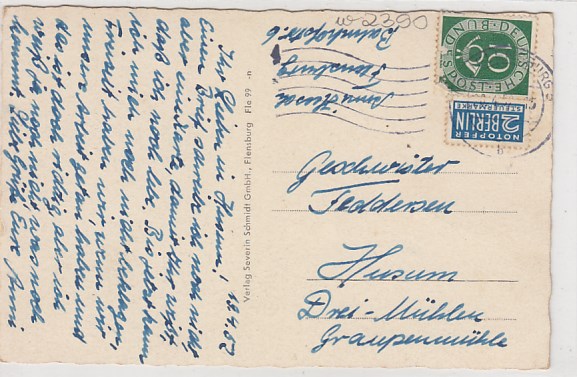 Ihr Lieben in Husum! 18.4.52
Einen Brief sende ich noch nicht
aber eine Karte damit Ihr wißt,
daß wir noch da. Bis jetzt kann
ich mich noch nicht beklagen,
Freizeit haben wir, wenn wir
unsere Arbeit getan haben und
das ist ganz richtig, als ich
weiß ja noch nicht was noch
kommt. Viele Grüße Eure Anni
Verlag Severin Schmidt GmbH., Flensburg Fle 99 -n
w 2390
Flensburg
Bahnhofstr. 6
DEUTSCHE BUNDESPOST
10
NOTOPFER
2 BERLIN
STEUERMARKE
b
Geschwister
Feddersen
Husum
Drei-Mühlen
Graupenmühle